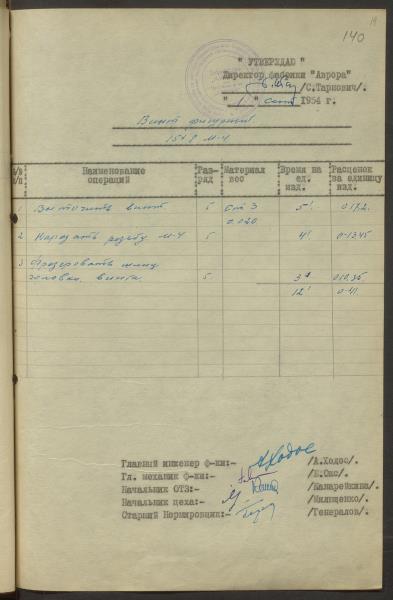 140
" УТВЕРЖДАЮ "
Директор фабрики "Аврора"
/С.Тарнович/.
" 1 " 1954 г.
Винт фигурный
15×8 М-4
№№ п/п Наименование операций Раз-ряд Материал вес Время на ед. изд. Расценок за единицу изд.
1 Выточить винт 5 ст 3 0.020 5'
2 Нарезать резьбу М-4 5 4' 0-13.45
3 Фрезеровать шлиц
головки винта 5 3'
12' 0-41
Главный инженер ф-ки:- А.Ходос /А.Ходос/.
Гл. механик ф-ки:-
Начальник ОТЗ:- /Канарейкина/.
Начальник цеха:- /Милященко/.
Старший Нормировщик:- /Генералов/.